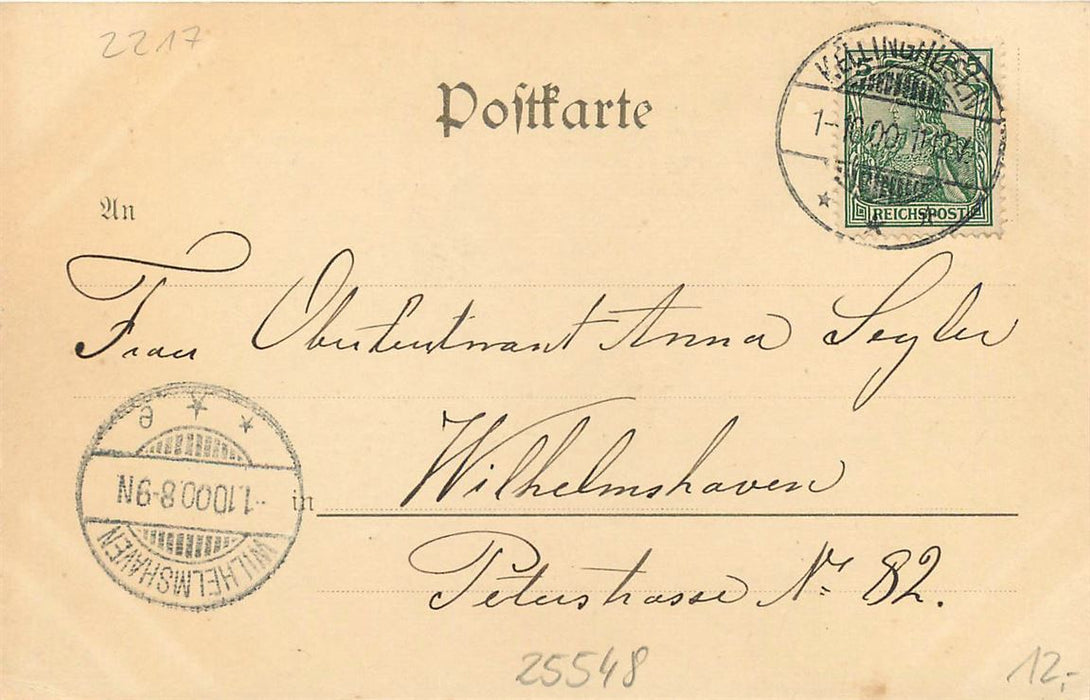 2217
Postkarte
KELLINGHUSEN
1-10.00. 11-12V.
5 5
REICHSPOST
An
Frau Oberleutnant Anna Segler
e
-1.10.00.8-9N
WILHELMSHAVEN
in Wilhelmshaven
Peterstrasse Nr 82.
25548
12,-